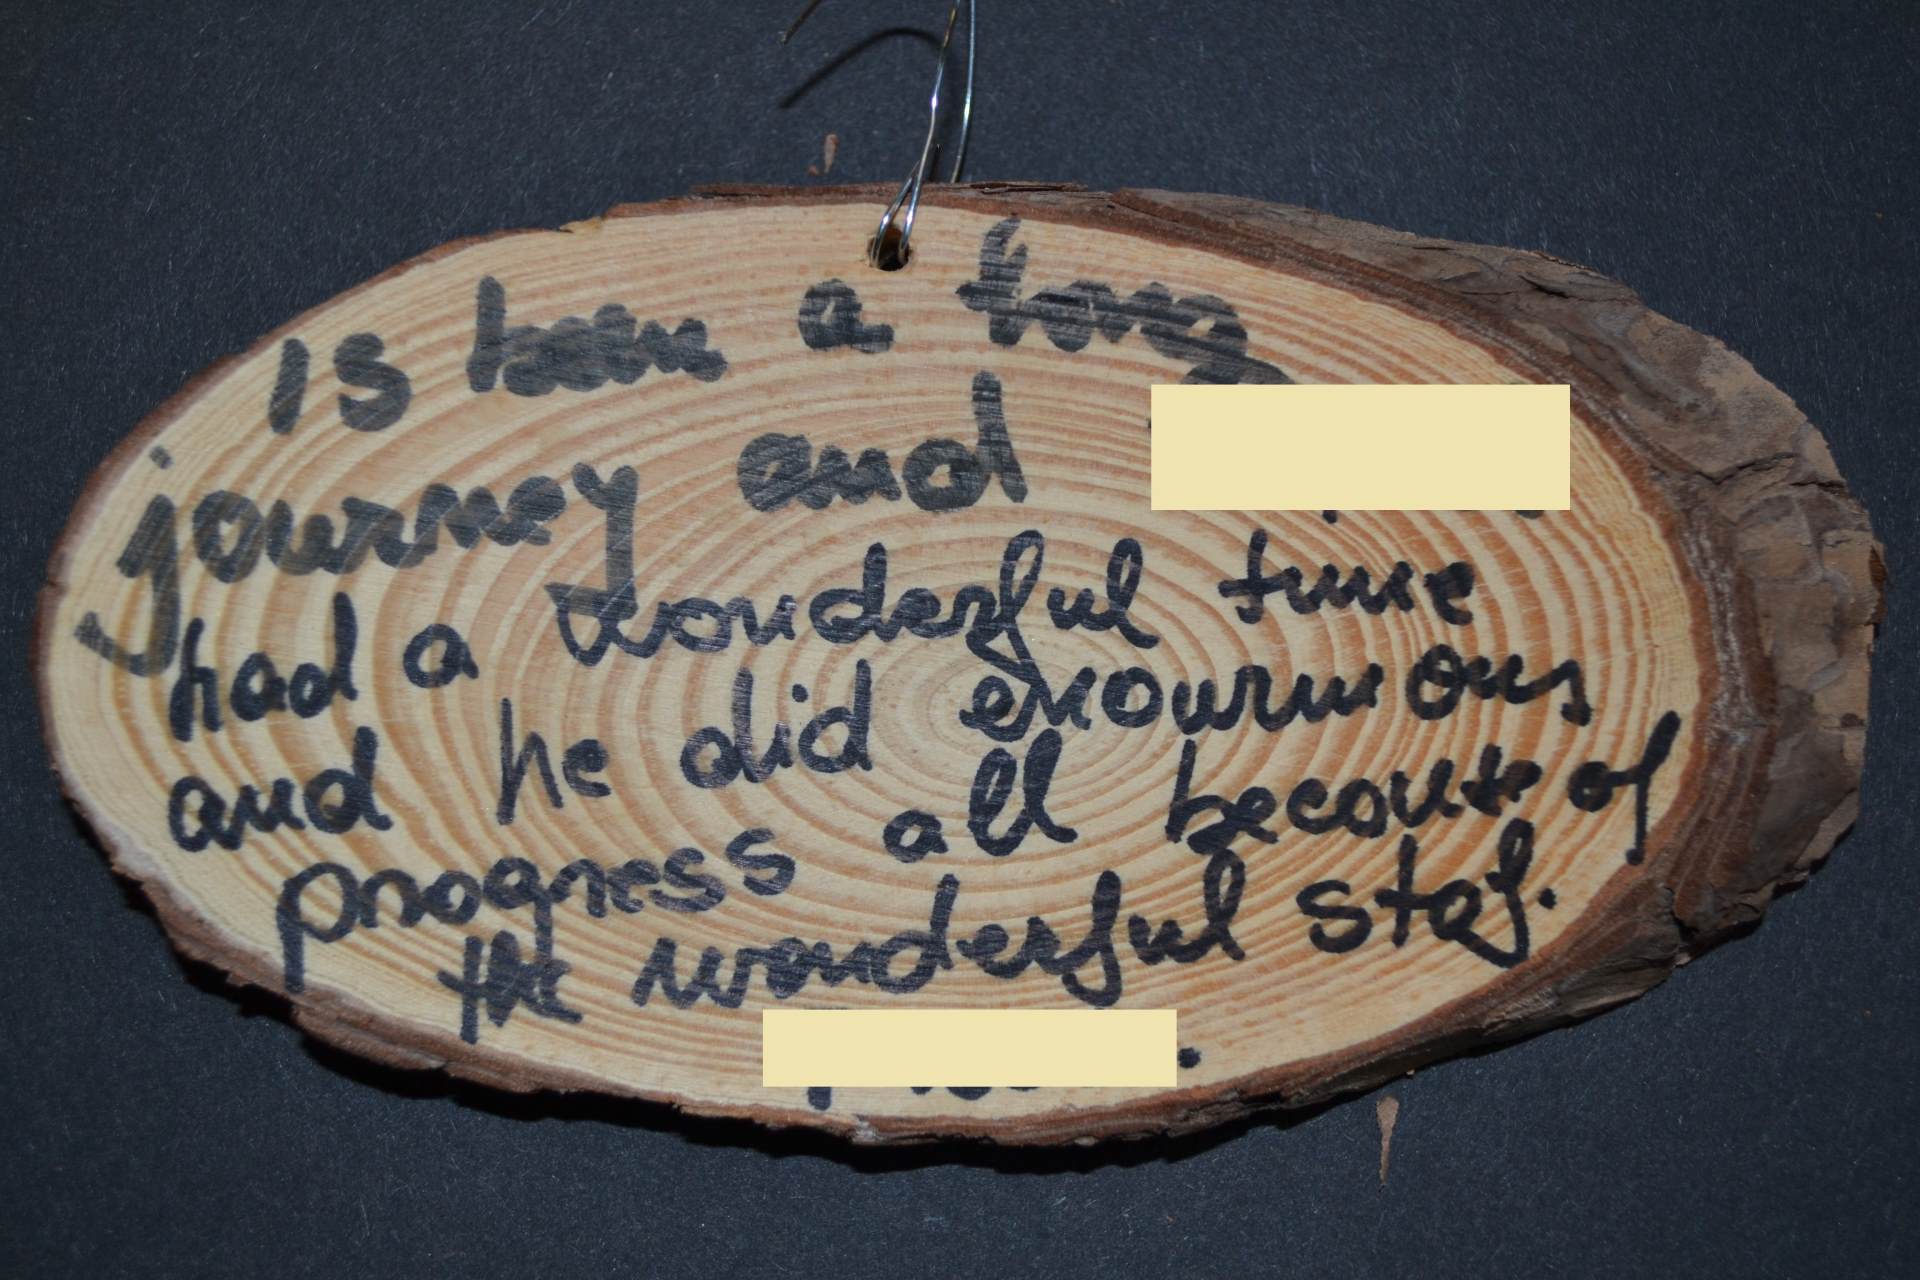 is been a long
journey and
had a wonderful time
and he did enourmous
progness all becouse of
the wonderful staf.